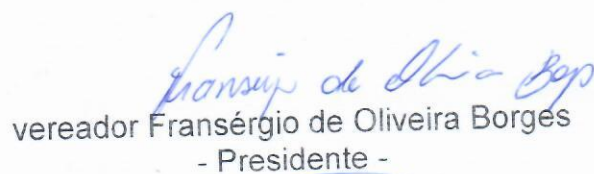 Fransérgio de Oliveira Borges
vereador Fransérgio de Oliveira Borges
- Presidente -